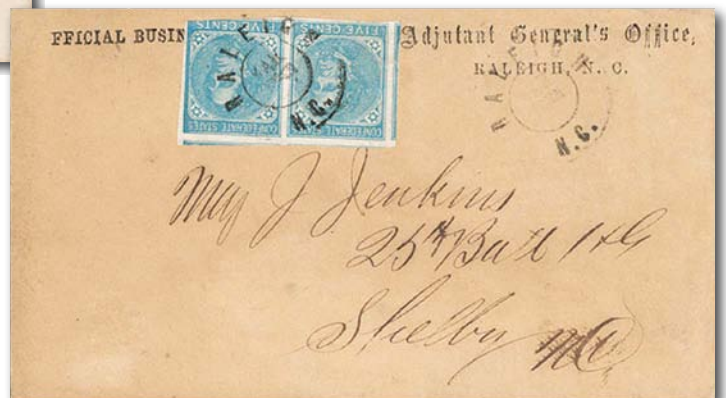 FFICIAL BUSIN
Adjutant General's Office,
RALEIGH, N. C.
FIVE CENTS FIVE CENTS
CONFEDERATE STATES CONFEDERATE STATES
RALEIGH N.C.
RALEIGH N.C.
Maj J Jenkins
25th Batt HG
Shelby NC